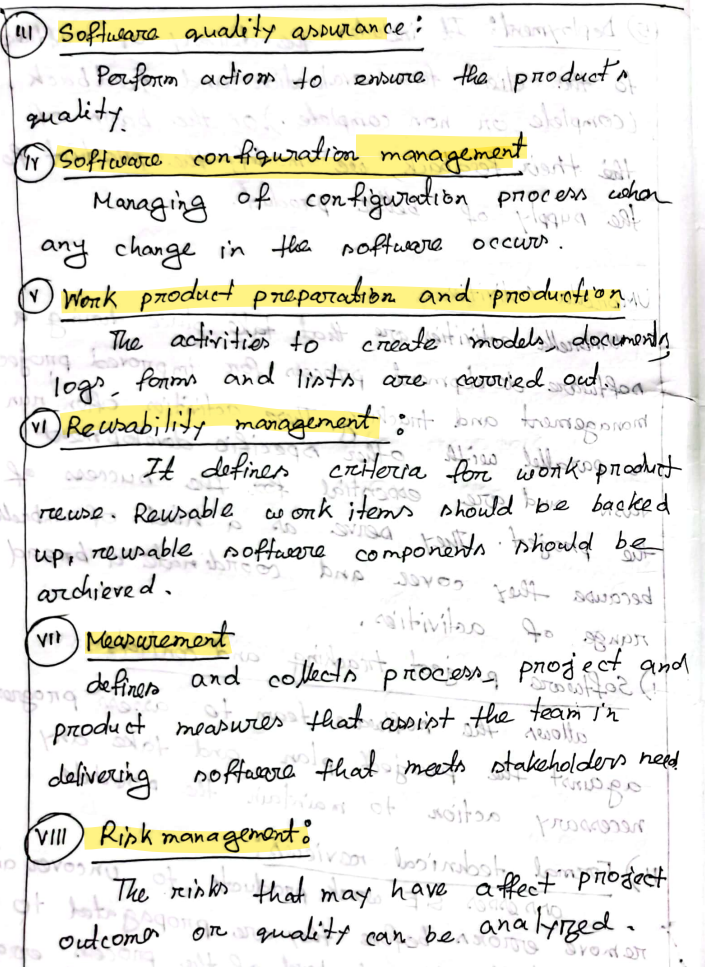 III Software quality assurance:
Perform actions to ensure the product's
quality.
IV Software configuration management
Managing of configuration process when
any change in the software occurs.
V Work product preparation and production
The activities to create models, documents,
logs, forms and lists are carried out
VI Reusability management :
It defines criteria for work product
reuse. Reusable work items should be backed
up, reusable software components should be
archieved.
VII Measurement
defines and collects process, project and
product measures that assist the team in
delivering software that meets stakeholders need.
VIII Risk management:
The risks that may have affect project
outcomes or quality can be analyzed.